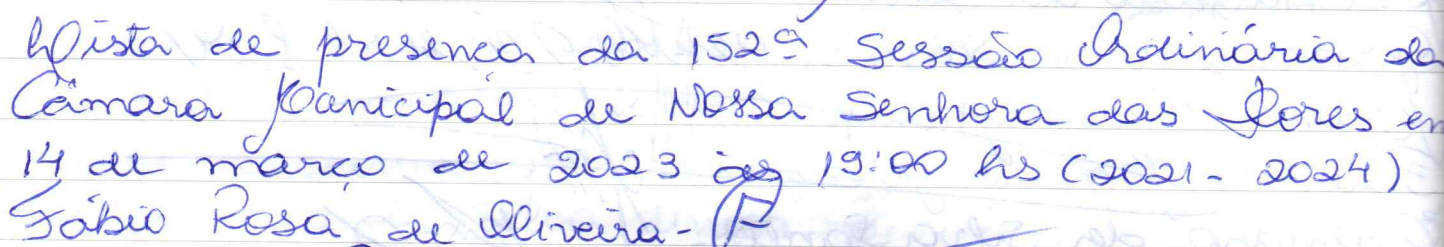 Lista de presença da 152ª Sessão Ordinária da
Câmara Municipal de Nossa Senhora das Dores em
14 de março de 2023 às 19:00 hs (2021 - 2024)
Fábio Rosa de Oliveira -